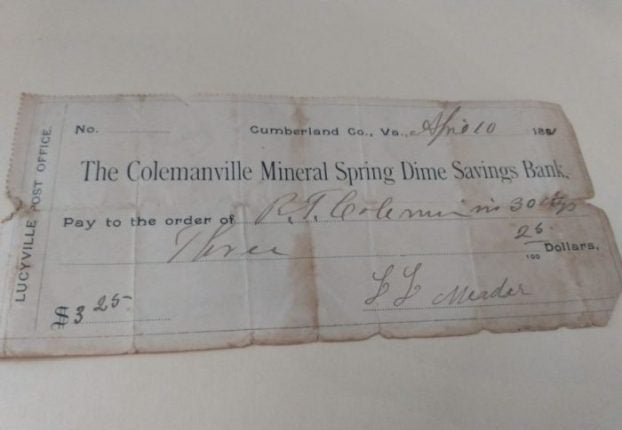 LUCYVILLE POST OFFICE.
No. Cumberland Co., Va., April 10 188
The Colemanville Mineral Spring Dime Savings Bank.
Pay to the order of R. T. Coleman in 30 days
Three 25/100 Dollars.
$ 3 25
L L Meador